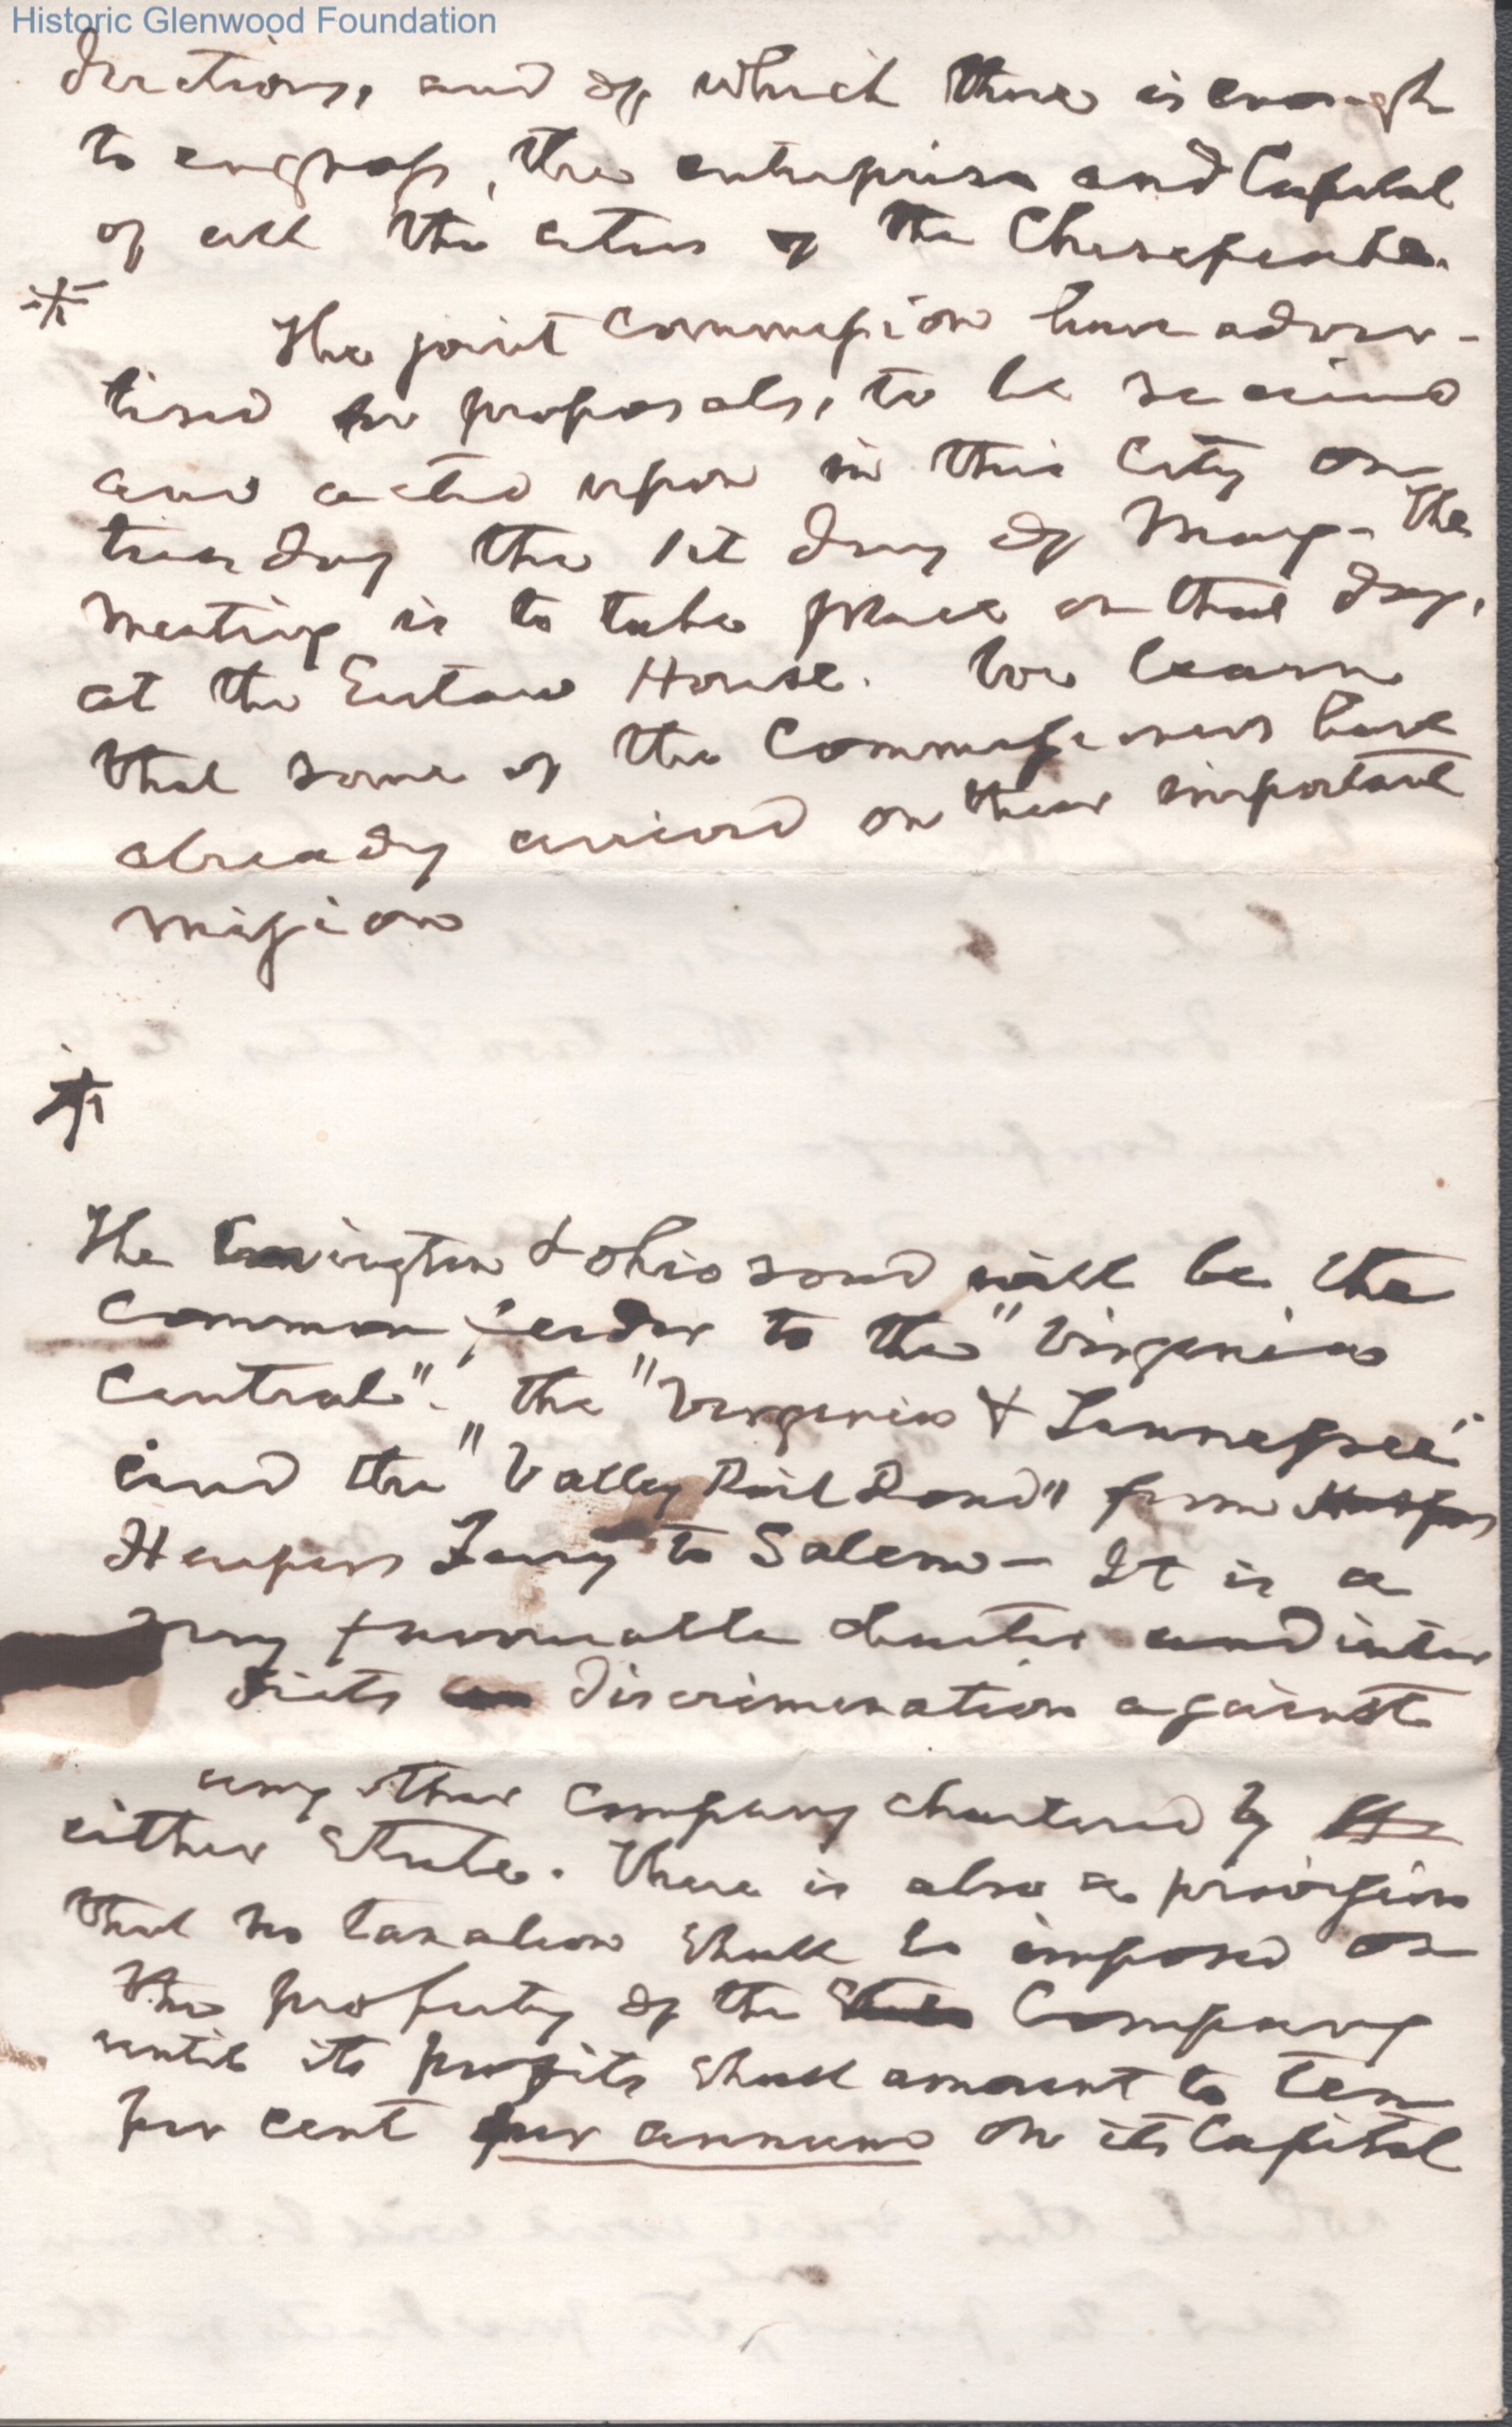 Historic Glenwood Foundation
directions, and of which there is enough
to engross, the enterprise and Capital
of all the cities of the Chesapeake.
* The joint Commission have adver-
tised for proposals, to be received
and acted upon in this City on
tuesday the 1st day of May - The
meeting is to take place on that day,
at the Eutaw House. We learn
that some of the Commissioners have
already arrived on their important
mission
*
The Covington & Ohio road will be the
Common feeder to the "Virginia
Central". the "Virginia & Tennessee"
and the "Valley Rail Road" from Harpers
Harpers Ferry to Salem - It is a
very favourable charter and inter
dicts discrimination against
any other Company chartered by
either State. There is also a provision
that no taxation shall be imposed on
the property of the State Company
until its profits shall amount to ten
per cent per annum on its Capital